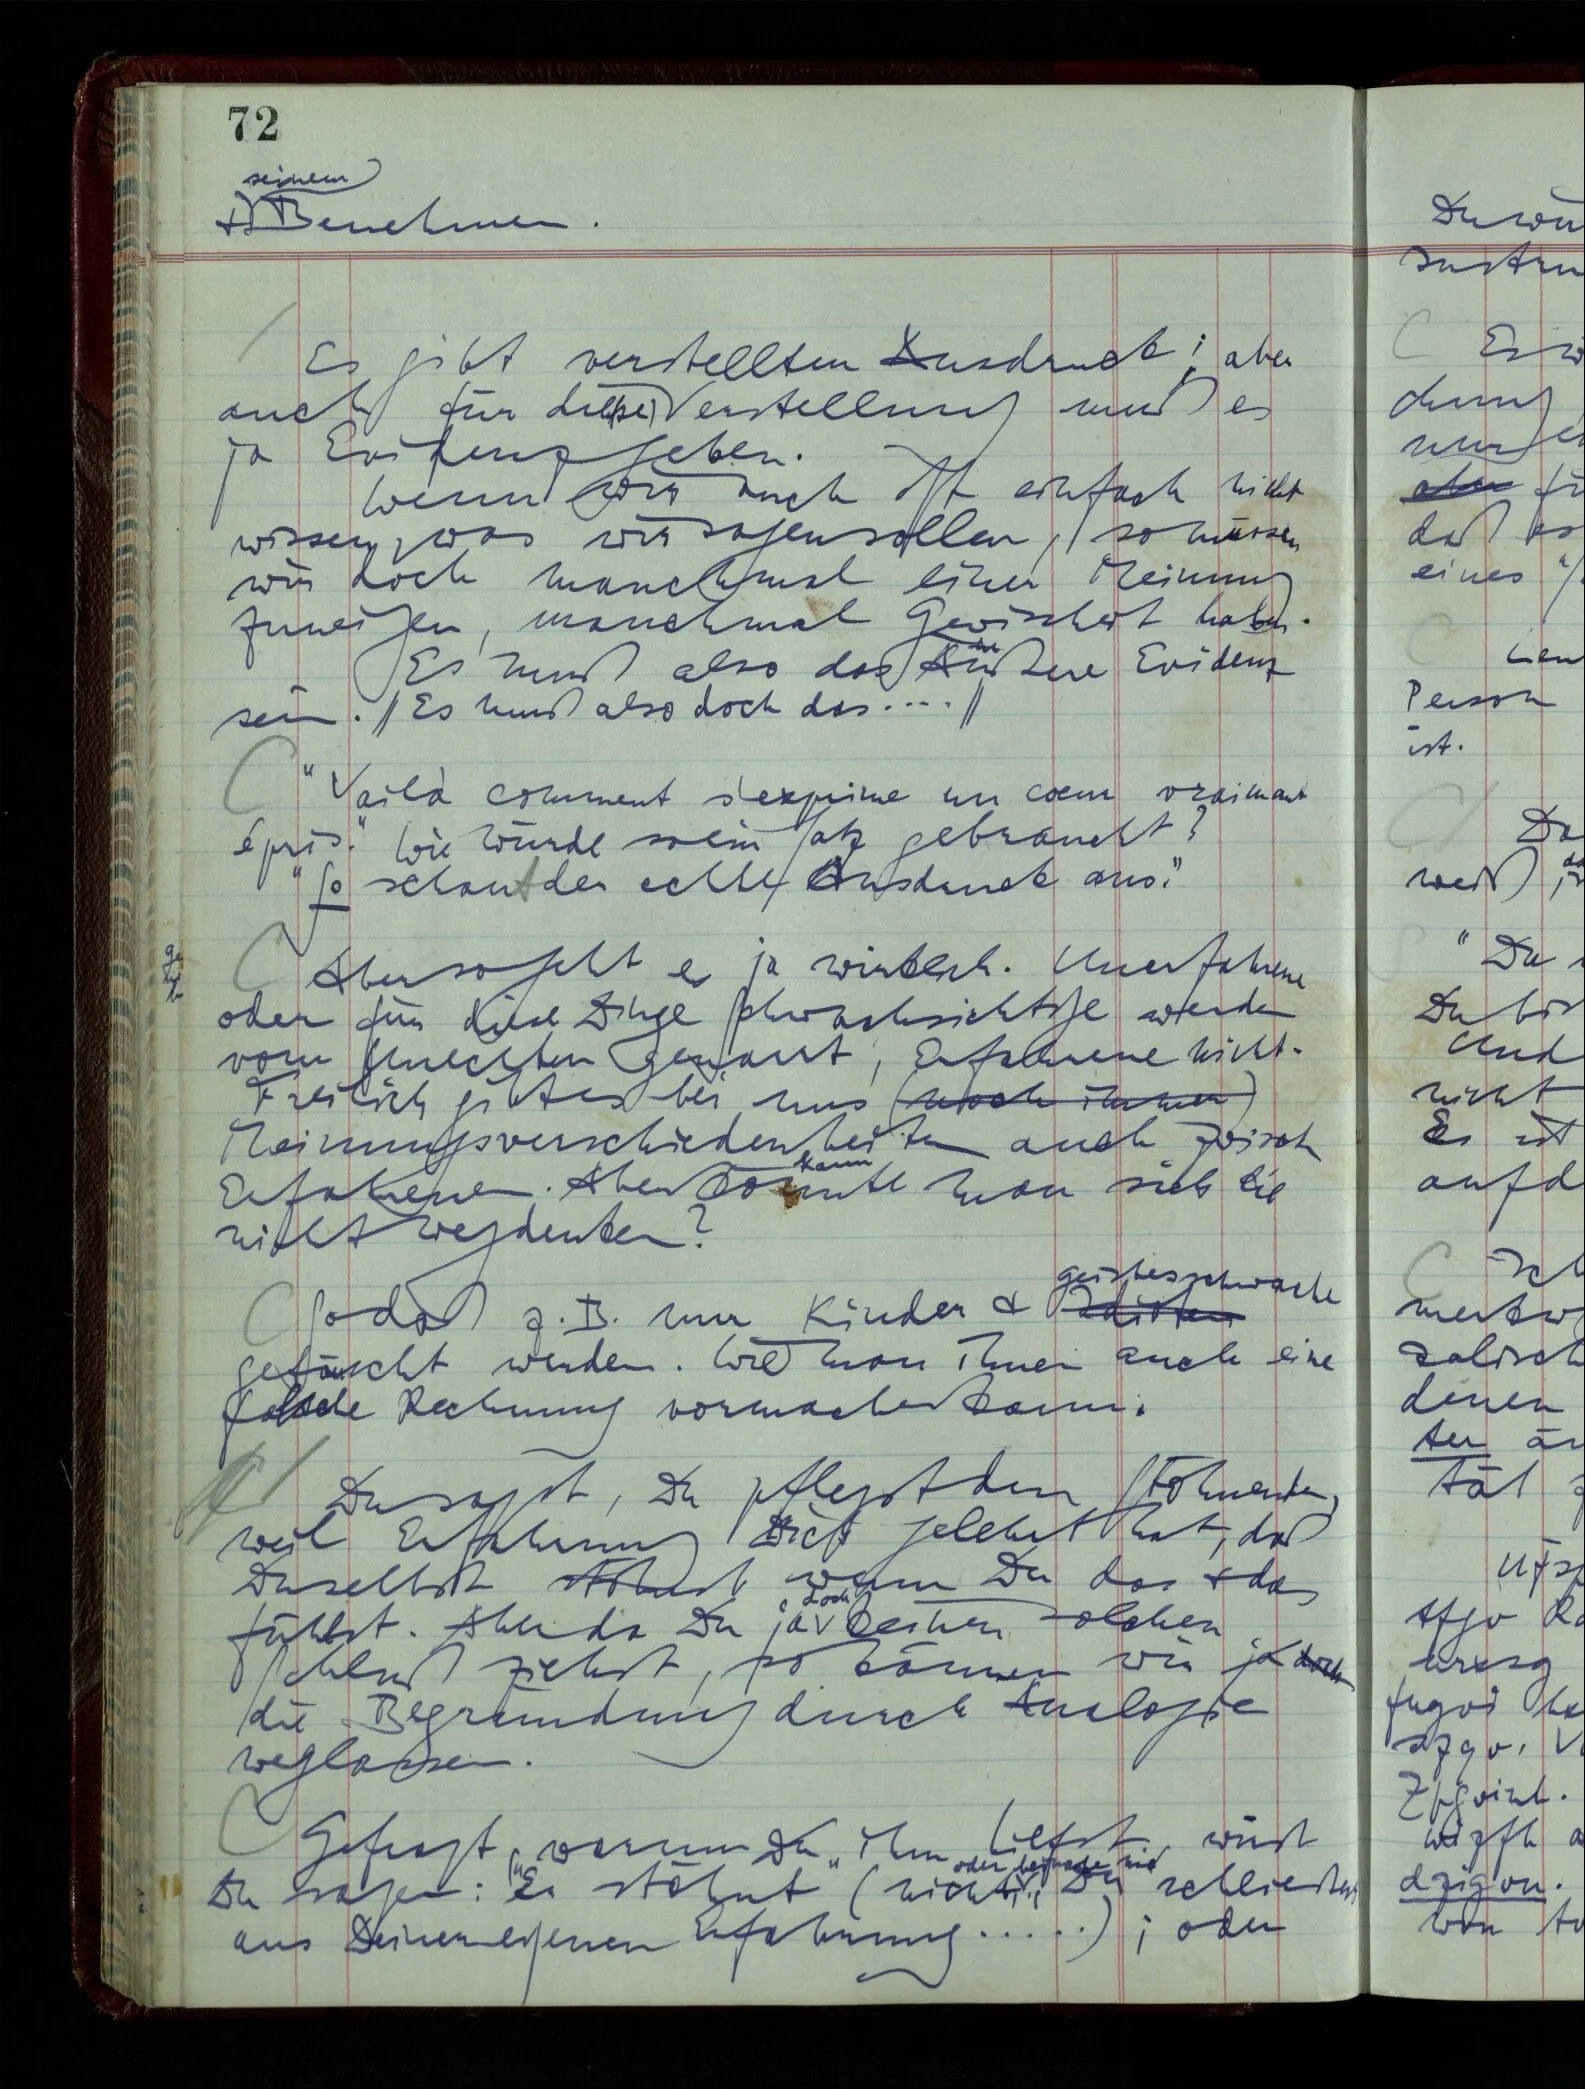 72
seinem
& Benehmen.
Es gibt verstellten Ausdruck; aber
auch für die(se) Verstellung muß es
ja Evidenz geben.
Wenn wir auch oft einfach nicht
wissen, was wir sagen sollen, so müssen
wir doch manchmal einer Meinung
zuneigen, manchmal Gewissheit haben.
Es muß also das Äußere Evidenz
sein. // Es muß also doch das .... //
"Voilà comment s'exprime un coeur vraiment
épris." Wie würde so ein Satz gebraucht?
"So schaut der echte Ausdruck aus."
Aber so geht es ja wirklich. Unerfahrene
oder für diese Dinge Schwachsichtige werden
vom Unechten genarrt, Erfahrene nicht.
Freilich gibt es bei uns (noch immer)
Meinungsverschiedenheiten auch zwisch
kann
Erfahrenen. Aber könnte man sich die
nicht wegdenken?
geistesschwache
So daß z.B. nur Kinder & Idioten
getäuscht werden. Wie man ihnen auch eine
falsche Rechnung vormachen kann.
Du sagst, Du pflegst den Stöhnenden,
weil Erfahrung Dich gelehrt hat, daß
Du selbst stöhnst wenn Du das & das
doch
fühlst. Aber da Du ja keinen solchen
Schluß ziehst, so können wir ja doch
die Begründung durch Analogie
weglassen.
Gefragt, warum Du ihm hilfst, wirst
oder beinahe nie
Du sagen: "Er stöhnt" (nicht: Du schließest
aus Deiner eigenen Erfahrung .....); oder
Du wü
Es w
nur
daß es
eines
Person
ist.
Da
weiß
"Du
Du bis
Und
nicht
Es ist
auf d
Ich
merkw
denen